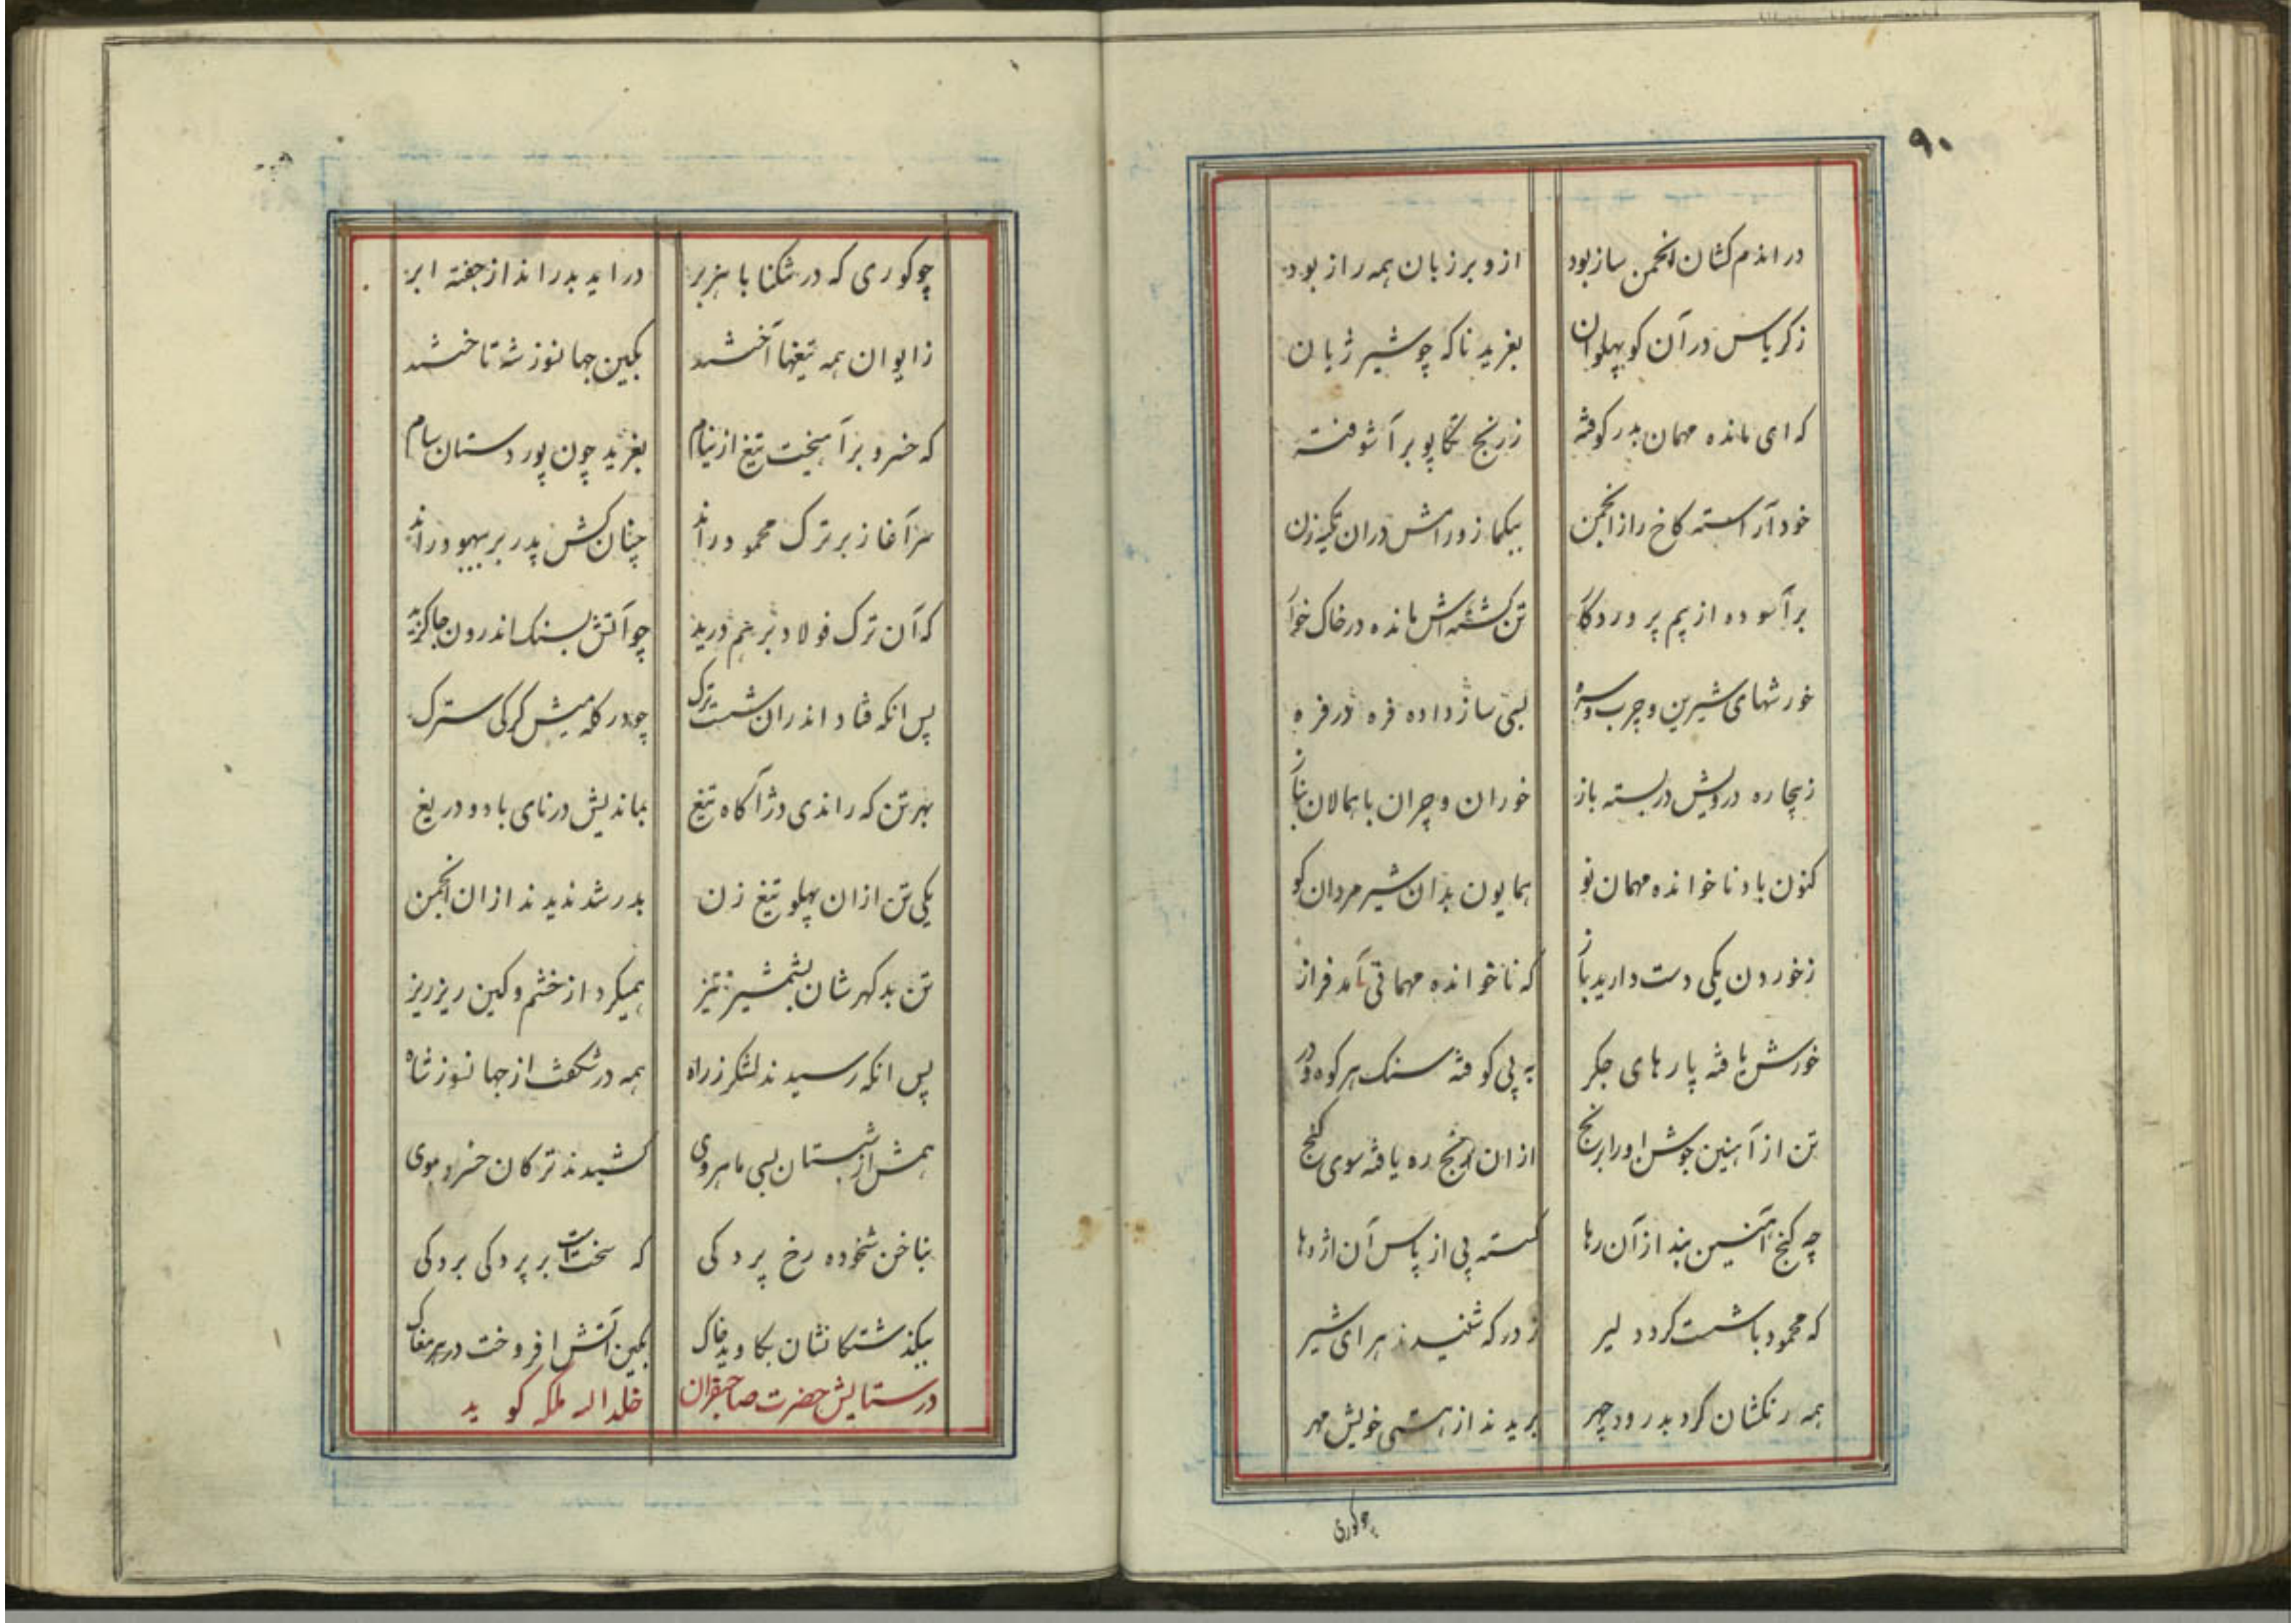 ۹۰
در اندم کشان انجمن ساز بود از و بر زبان همه راز بود
ز کریاس در آن کو پهلوان بغرید ناکه چو شیر ژیان
که ای مانده مهمان بدر کوفته ز رنج تکاپو بر آشوفته
خود آراسته کاخ را ز انجمن بیکماز و رامش دران تکیه زن
بر آسوده از بیم پروردگار تن کشته‌اش مانده در خاک خوار
خورشهای شیرین و چرب و سره بسی ساز داده فره در فره
ز بیچاره درویش در بسته باز خوران و چران با همالان بناز
کنون باد ناخوانده مهمان نو همایون بدان شیر مردان کو
ز خوردن یکی دست دارید باز که ناخوانده مهمانی آمد فراز
خورش یافته پارهای جکر به پی کوفته سنک هر کوه و در
تن از آهنین جوشن او را برنج از ان رنج ره یافته سوی کنج
چه کنج آهنین بند از آن رها کسسته پی از پاس آن اژدها
که محمود با شست کرد دلیر ز درکه شنیدند هرای شیر
همه رنکشان کرد بدرود چهر بریدند از هستی خویش مهر
چو کوری
چو کوری که در تنکنا با هزبر در اید بدراند از جفته ابر
ز ایوان همه تیغها آختند بکین جهانسوز شه تاختند
که خسرو بر آهیخت تیغ از نیام بغرید چون پور دستان سام
سر آغاز بر ترک محمود راند چنان کش پدر بر بهو راند
که آن ترک فولاد بر هم درید چو آتش بسنک اندرون جا کزید
پس انکه فتاد اندران شست ترک چو در کله میش کرکی سترک
بهر تن که راندی دژ آکاه تیغ بماندیش در نای باد و دریغ
یکی تن از ان پهلو تیغ زن بدر شد ندیدند از ان انجمن
تن بد کهرشان بشمشیر تیز همیکرد از خشم و کین ریز ریز
پس انکه رسیدند لشکر ز راه همه در شکفت از جهانسوز شاه
همش از شبستان بسی ماهروی کشیدند ترکان خسرو موی
بناخن شخوده رخ پردکی که سخت است بر پردکی بردکی
بکذشتکانشان بکاوید خاک بکین آتش افروخت در هر مغاک
در ستایش حضرت صاحبقران خلد الله ملکه کوید